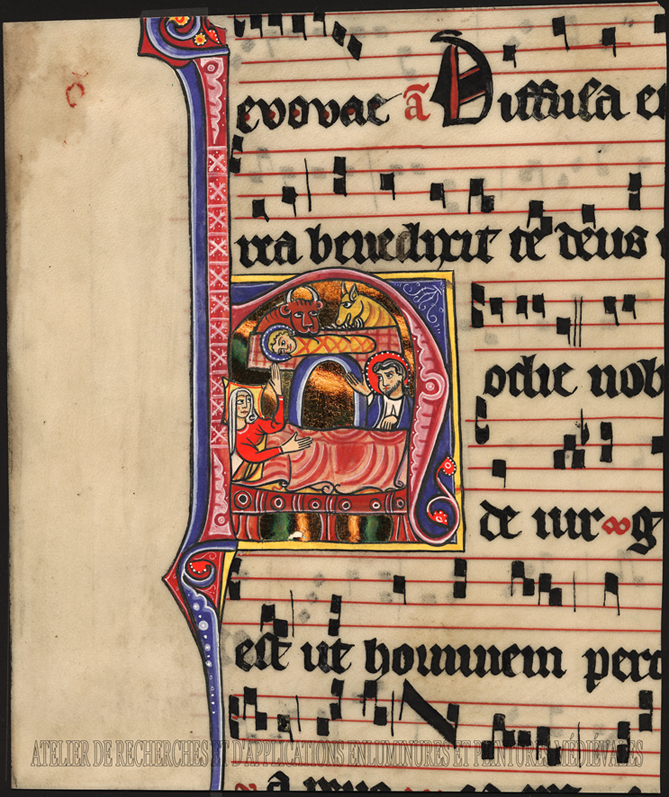 evovae ā Diffusa e
benedixit te deus
Hodie nob
de uir g
est ut hominem per
N
ATELIER DE RECHERCHES ET D'APPLICATIONS ENLUMINURES ET PEINTURES MÉDIÉVALES